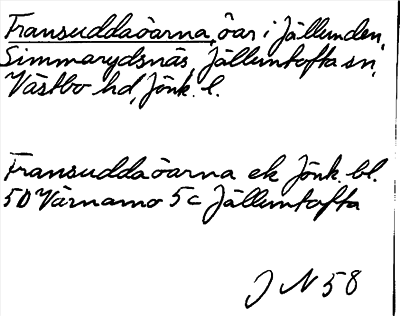 Transuddaöarna, öar i Jällunden,
Simmarydsnäs, Jälluntofta sn,
Västbo hd, Jönk. l.
Transuddaöarna ek Jönk. bl.
5D Värnamo 5c Jälluntofta
J N 58